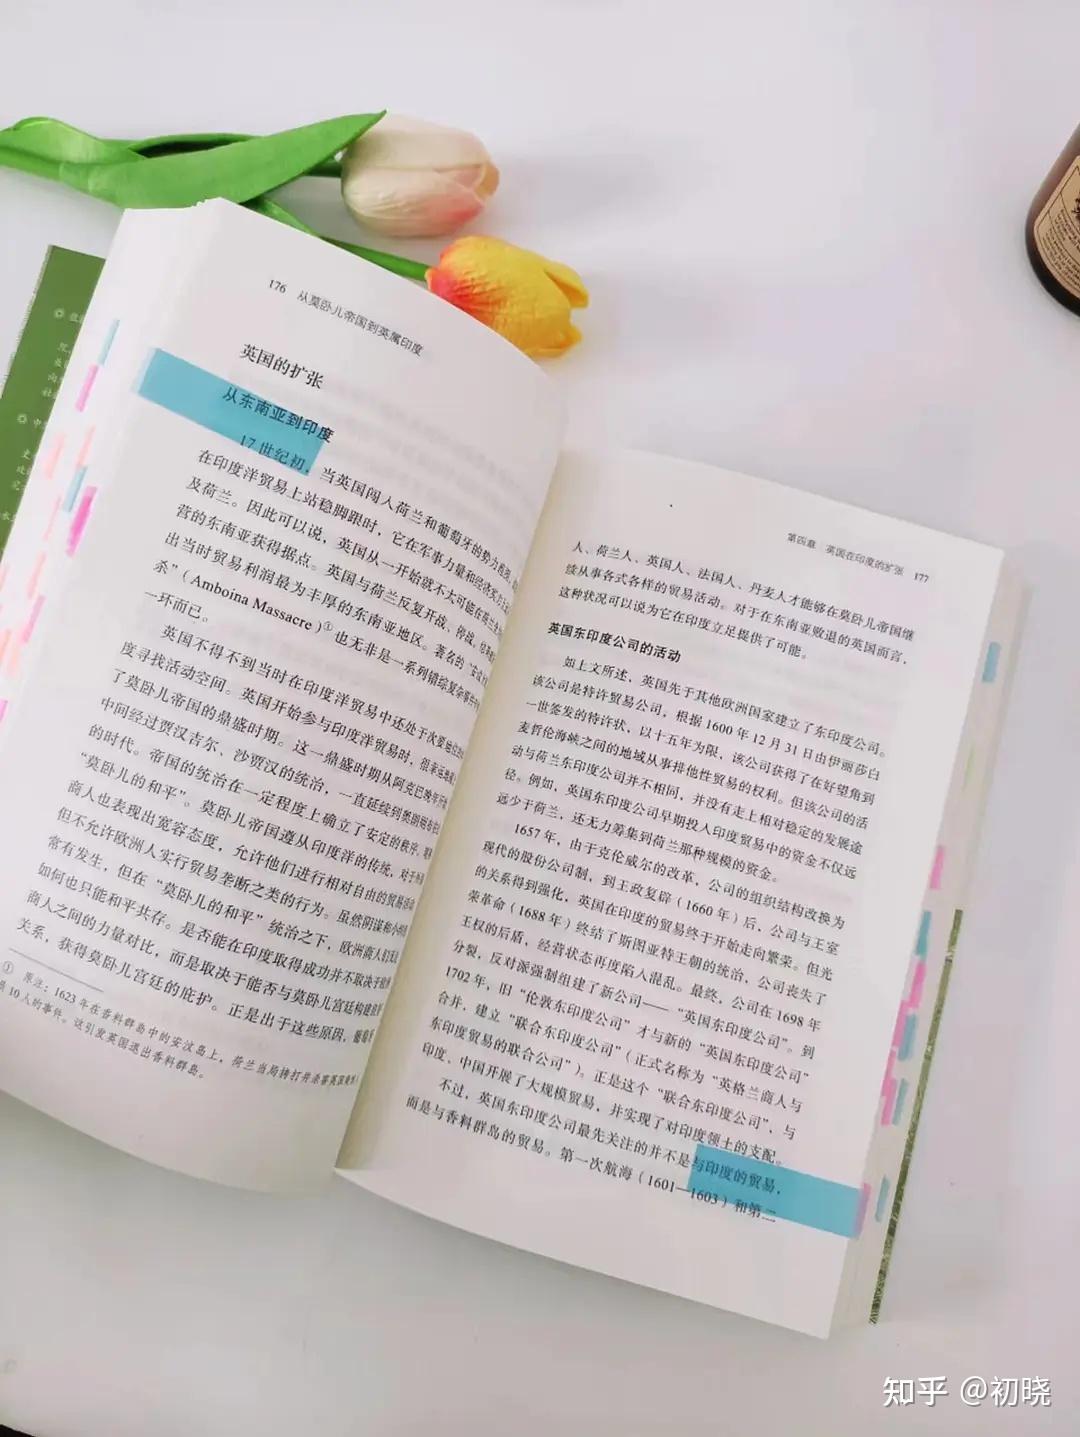 176 从莫卧儿帝国到英属印度
英国的扩张
从东南亚到印度
17世纪初，当英国闯入荷兰和葡萄牙的势力范围，
在印度洋贸易上站稳脚跟时，它在军事力量和经济实力上
及荷兰。因此可以说，英国从一开始就不太可能在荷兰
营的东南亚获得据点。英国与荷兰反复开战、停战，
出当时贸易利润最为丰厚的东南亚地区。著名的
杀”（Amboina Massacre）①也无非是一系列错综复杂事件中
一环而已。
英国不得不到当时在印度洋贸易中还处于次要地位的
度寻找活动空间。英国开始参与印度洋贸易时，
了莫卧儿帝国的鼎盛时期。这一鼎盛时期从阿克巴晚年开始
中间经过贾汉吉尔、沙贾汗的统治，一直延续到奥朗则布
的时代。帝国的统治在一定程度上确立了安定的秩序，
“莫卧儿的和平”。莫卧儿帝国遵从印度洋的传统，对于外国
商人也表现出宽容态度，允许他们进行相对自由的贸易活动
但不允许欧洲人实行贸易垄断之类的行为。虽然阴谋和小纠纷
常有发生，但在“莫卧儿的和平”统治之下，欧洲商人们无论
如何也只能和平共存。是否能在印度取得成功并不取决于欧洲
商人之间的力量对比，而是取决于能否与莫卧儿宫廷构建良好
关系，获得莫卧儿宫廷的庇护。正是出于这些原因，葡萄牙
① 原注：1623年在香料群岛中的安汶岛上，荷兰当局拷打并杀害英国商馆
10人的事件。这引发英国退出香料群岛。
第四章 英国在印度的扩张 177
人、荷兰人、英国人、法国人、丹麦人才能够在莫卧儿帝国继
续从事各式各样的贸易活动。对于在东南亚败退的英国而言，
这种状况可以说为它在印度立足提供了可能。
英国东印度公司的活动
如上文所述，英国先于其他欧洲国家建立了东印度公司。
该公司是特许贸易公司，根据1600年12月31日由伊丽莎白
一世签发的特许状，以十五年为限，该公司获得了在好望角到
麦哲伦海峡之间的地域从事排他性贸易的权利。但该公司的活
动与荷兰东印度公司并不相同，并没有走上相对稳定的发展途
径。例如，英国东印度公司早期投入印度贸易中的资金不仅远
远少于荷兰，还无力筹集到荷兰那种规模的资金。
1657年，由于克伦威尔的改革，公司的组织结构改换为
现代的股份公司制，到王政复辟（1660年）后，公司与王室
的关系得到强化，英国在印度的贸易终于开始走向繁荣。但光
荣革命（1688年）终结了斯图亚特王朝的统治，公司丧失了
王权的后盾，经营状态再度陷入混乱。最终，公司在1698年
分裂，反对派强制组建了新公司——“英国东印度公司”。到
1702年，旧“伦敦东印度公司”才与新的“英国东印度公司”
合并，建立“联合东印度公司”（正式名称为“英格兰商人与
东印度贸易的联合公司”）。正是这个“联合东印度公司”，与
印度、中国开展了大规模贸易，并实现了对印度领土的支配。
不过，英国东印度公司最先关注的并不是与印度的贸易，
而是与香料群岛的贸易。第一次航海（1601—1603）和第二
知乎 @初晓